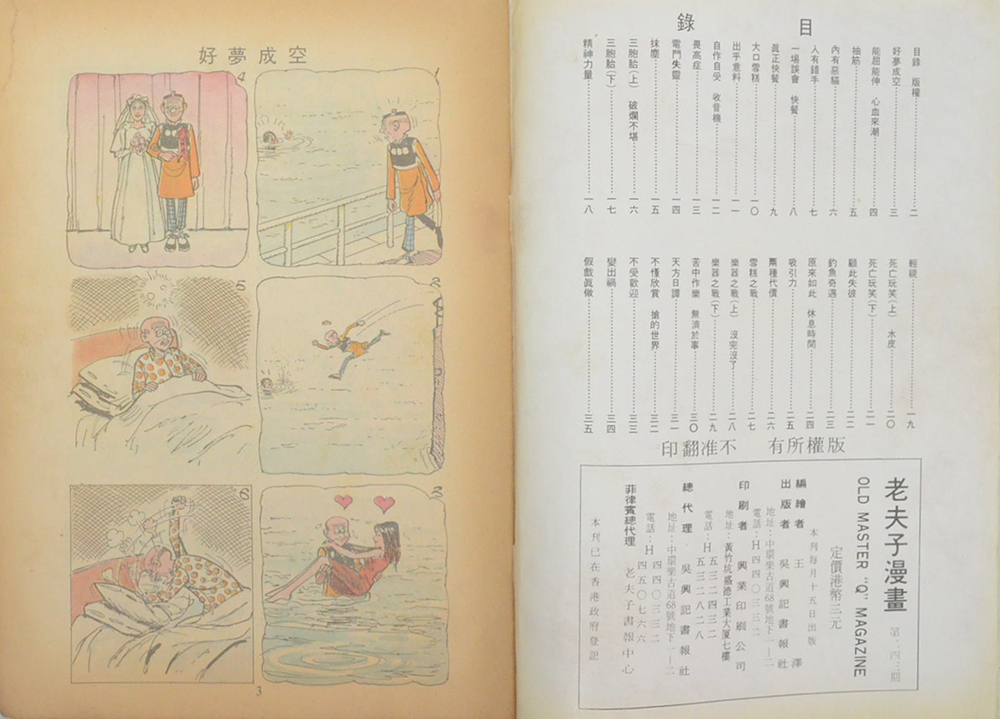 目錄
目錄 版權……二
好夢成空……三
能屈能伸 心血來潮……四
抽筋……五
內有惡貓……六
人有錯手……七
一場誤會 快餐……八
眞正快餐……九
大口雪糕……一〇
出乎意料……一一
自作自受 收音機……一二
畏高症……一三
電門失靈……一四
抹塵……一五
三胞胎(上) 破爛不堪……一六
三胞胎(下)……一七
精神力量……一八
輕視……一九
死亡玩笑(上) 水皮……二〇
死亡玩笑(下)……二一
顧此失彼……二二
釣魚奇遇……二三
原來如此 休息時間……二四
吸引力……二五
兩種代價……二六
雪糕之戰……二七
樂器之戰(上) 沒完沒了……二八
樂器之戰(下)……二九
苦中作樂 無濟於事……三〇
天方日譚……三一
不懂欣賞 搶的世界……三二
不受歡迎……三三
變出禍……三四
假戲眞做……三五
版權所有 不准翻印
老夫子漫畫
OLD MASTER "Q" MAGAZINE
定價港幣三元
本刊每月十五日出版
編繪者 王澤
出版者 吳興記書報社
地址:中環樂古道68號地下
電話:H四四〇三三二
印刷者 興業印刷公司
地址:黃竹坑盛德工業大厦七樓
電話:H五三二四三二
H五三二八二八
總代理 吳興記書報社
地址:中環樂古道68號地下
電話:H四四〇三三二
H四五〇七六六
菲律賓總代理 老夫子書報中心
本刊已在香港政府登記
好夢成空
1
2
3
4
5
6
3